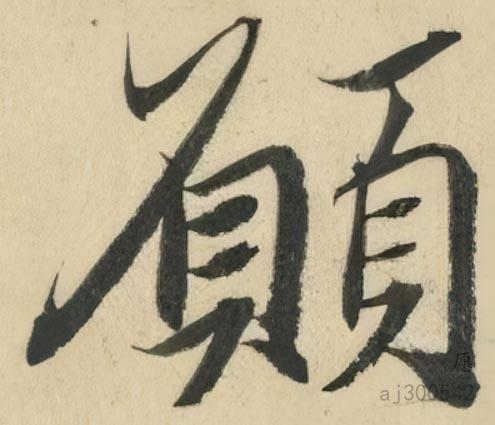 願
愿
aj300542